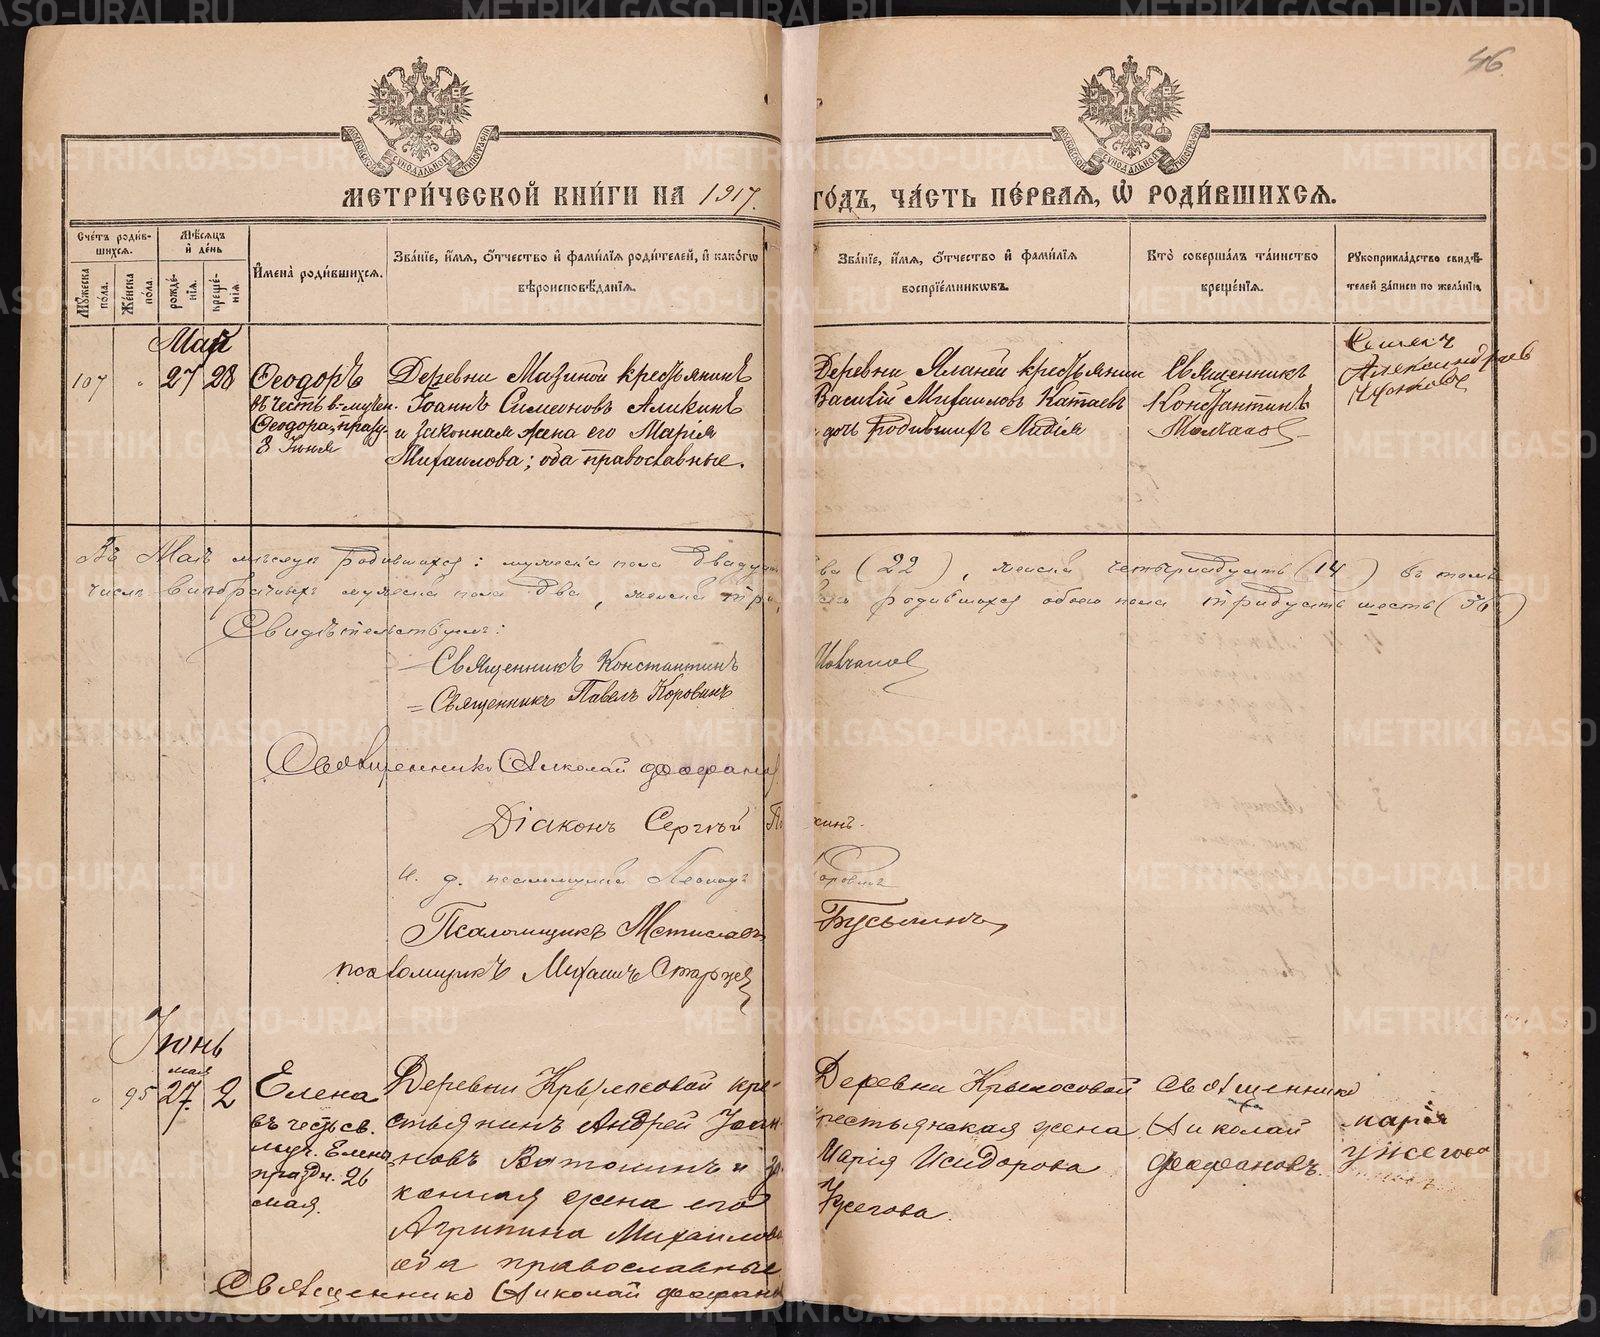 46
МОСКОВСКОЙ СѴНОДАЛЬНОЙ ТИПОГРАФІИ
МОСКОВСКОЙ СѴНОДАЛЬНОЙ ТИПОГРАФІИ
МЕТРИ́ЧЕСКОЙ КНИ́ГИ НА 1917.
ГОДЪ, ЧА́СТЬ ПЕ́РВАѦ, Ѽ РОДИ́ВШИХСѦ.
Сче́тъ роди́в-
шихсѧ.
Мѣ́сѧцъ
и҆ де́нь
Мꙋ́жеска
по́ла.
Же́нска
по́ла.
рожде́-
нїѧ.
креще́-
нїѧ
И҆мена̀ роди́вшихсѧ.
Зва́нїе, и҆́мѧ, ѻ҆́тчество и҆ фами́лїѧ роди́телей, и҆ како́гѡ
вѣроисповѣ́данїѧ.
Зва́нїе, и҆́мѧ, ѻ҆́тчество и҆ фами́лїѧ
воспрїе́мникѡвъ.
Кто̀ соверша́лъ та́инство
креще́нїѧ.
Рꙋкоприкла́дство свидѣ́-
телей за́писи по жела́нїю
Май
107 " 27 28
Ѳеодоръ
въ честь в.-мучен.
Ѳеодора, празд.
8 Июня
Деревни Мазиной крестьянинъ
Іоаннъ Симеоновъ Аликинъ
и законная жена его Марія
Михаилова; оба православные.
Деревни Яланей крестьянин
Василій Михаиловъ Катаевъ
и дочь родившихъ Лидія
Священникъ
Константинъ
Молчанов
Семенъ
Александров
Въ Маѣ мѣсяцѣ родившихся: мужеска пола двадцать
два (22), женска четырнадцать (14) въ томъ
числѣ внѣбрачныхъ мужеска пола два, женска три,
всѣхъ родившихся обоего пола тридцать шесть (36)
Свидѣтельствуемъ:
Священникъ Константинъ Молчанов
= Священникъ Павелъ Коровинъ
Священникъ Николай Феофанов
Діаконъ Сергѣй
и. д. псаломщика Леонидъ Коровинъ
Псаломщикъ Мстиславъ Бусыгинъ
псаломщикъ Михаилъ Старцев
Іюнь
мая
" 95 27. 2
Елена
въ честь св.
муч. Елены
праздн. 26
мая.
Деревни Крылосовой кре-
стьянинъ Андрей Іоан-
новъ Ватолинъ и за-
конная жена его
Агрипина Михаилова
оба православные
Деревни Крылосовой
крестьянская жена
Марія Исидорова
Ужегова.
Священникъ
Николай
Феофановъ.
Марія
Ужегова
Священникъ Николай Феофанов
METRIKI.GASO-URAL.RU